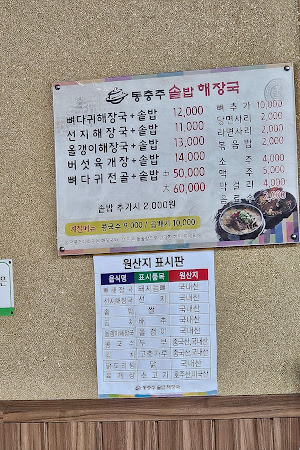 동충주 솥밥 해장국
뼈다귀해장국+솥밥 12,000
선지해장국+솥밥 11,000
올갱이해장국+솥밥 13,000
버섯육개장+솥밥 14,000
뼈다귀전골+솥밥 中 50,000
大 60,000
솥밥 추가시 2,000원
뼈추가 10,000
당면사리 2,000
라면사리 2,000
볶음밥 2,000
소주 4,000
맥주 5,000
막걸리 4,000
콩국수 9,000
원산지 표시판
음식명 표시품목 원산지
뼈해장국 돼지등뼈 국내산
선지해장국 선지 국내산
솥밥 쌀 국내산
김치 배추 국내산
올갱이해장국 올갱이 국내산
콩국수 두부
김치 고춧가루
닭 국내산
육개장 소고기
동충주 솥밥 해장국